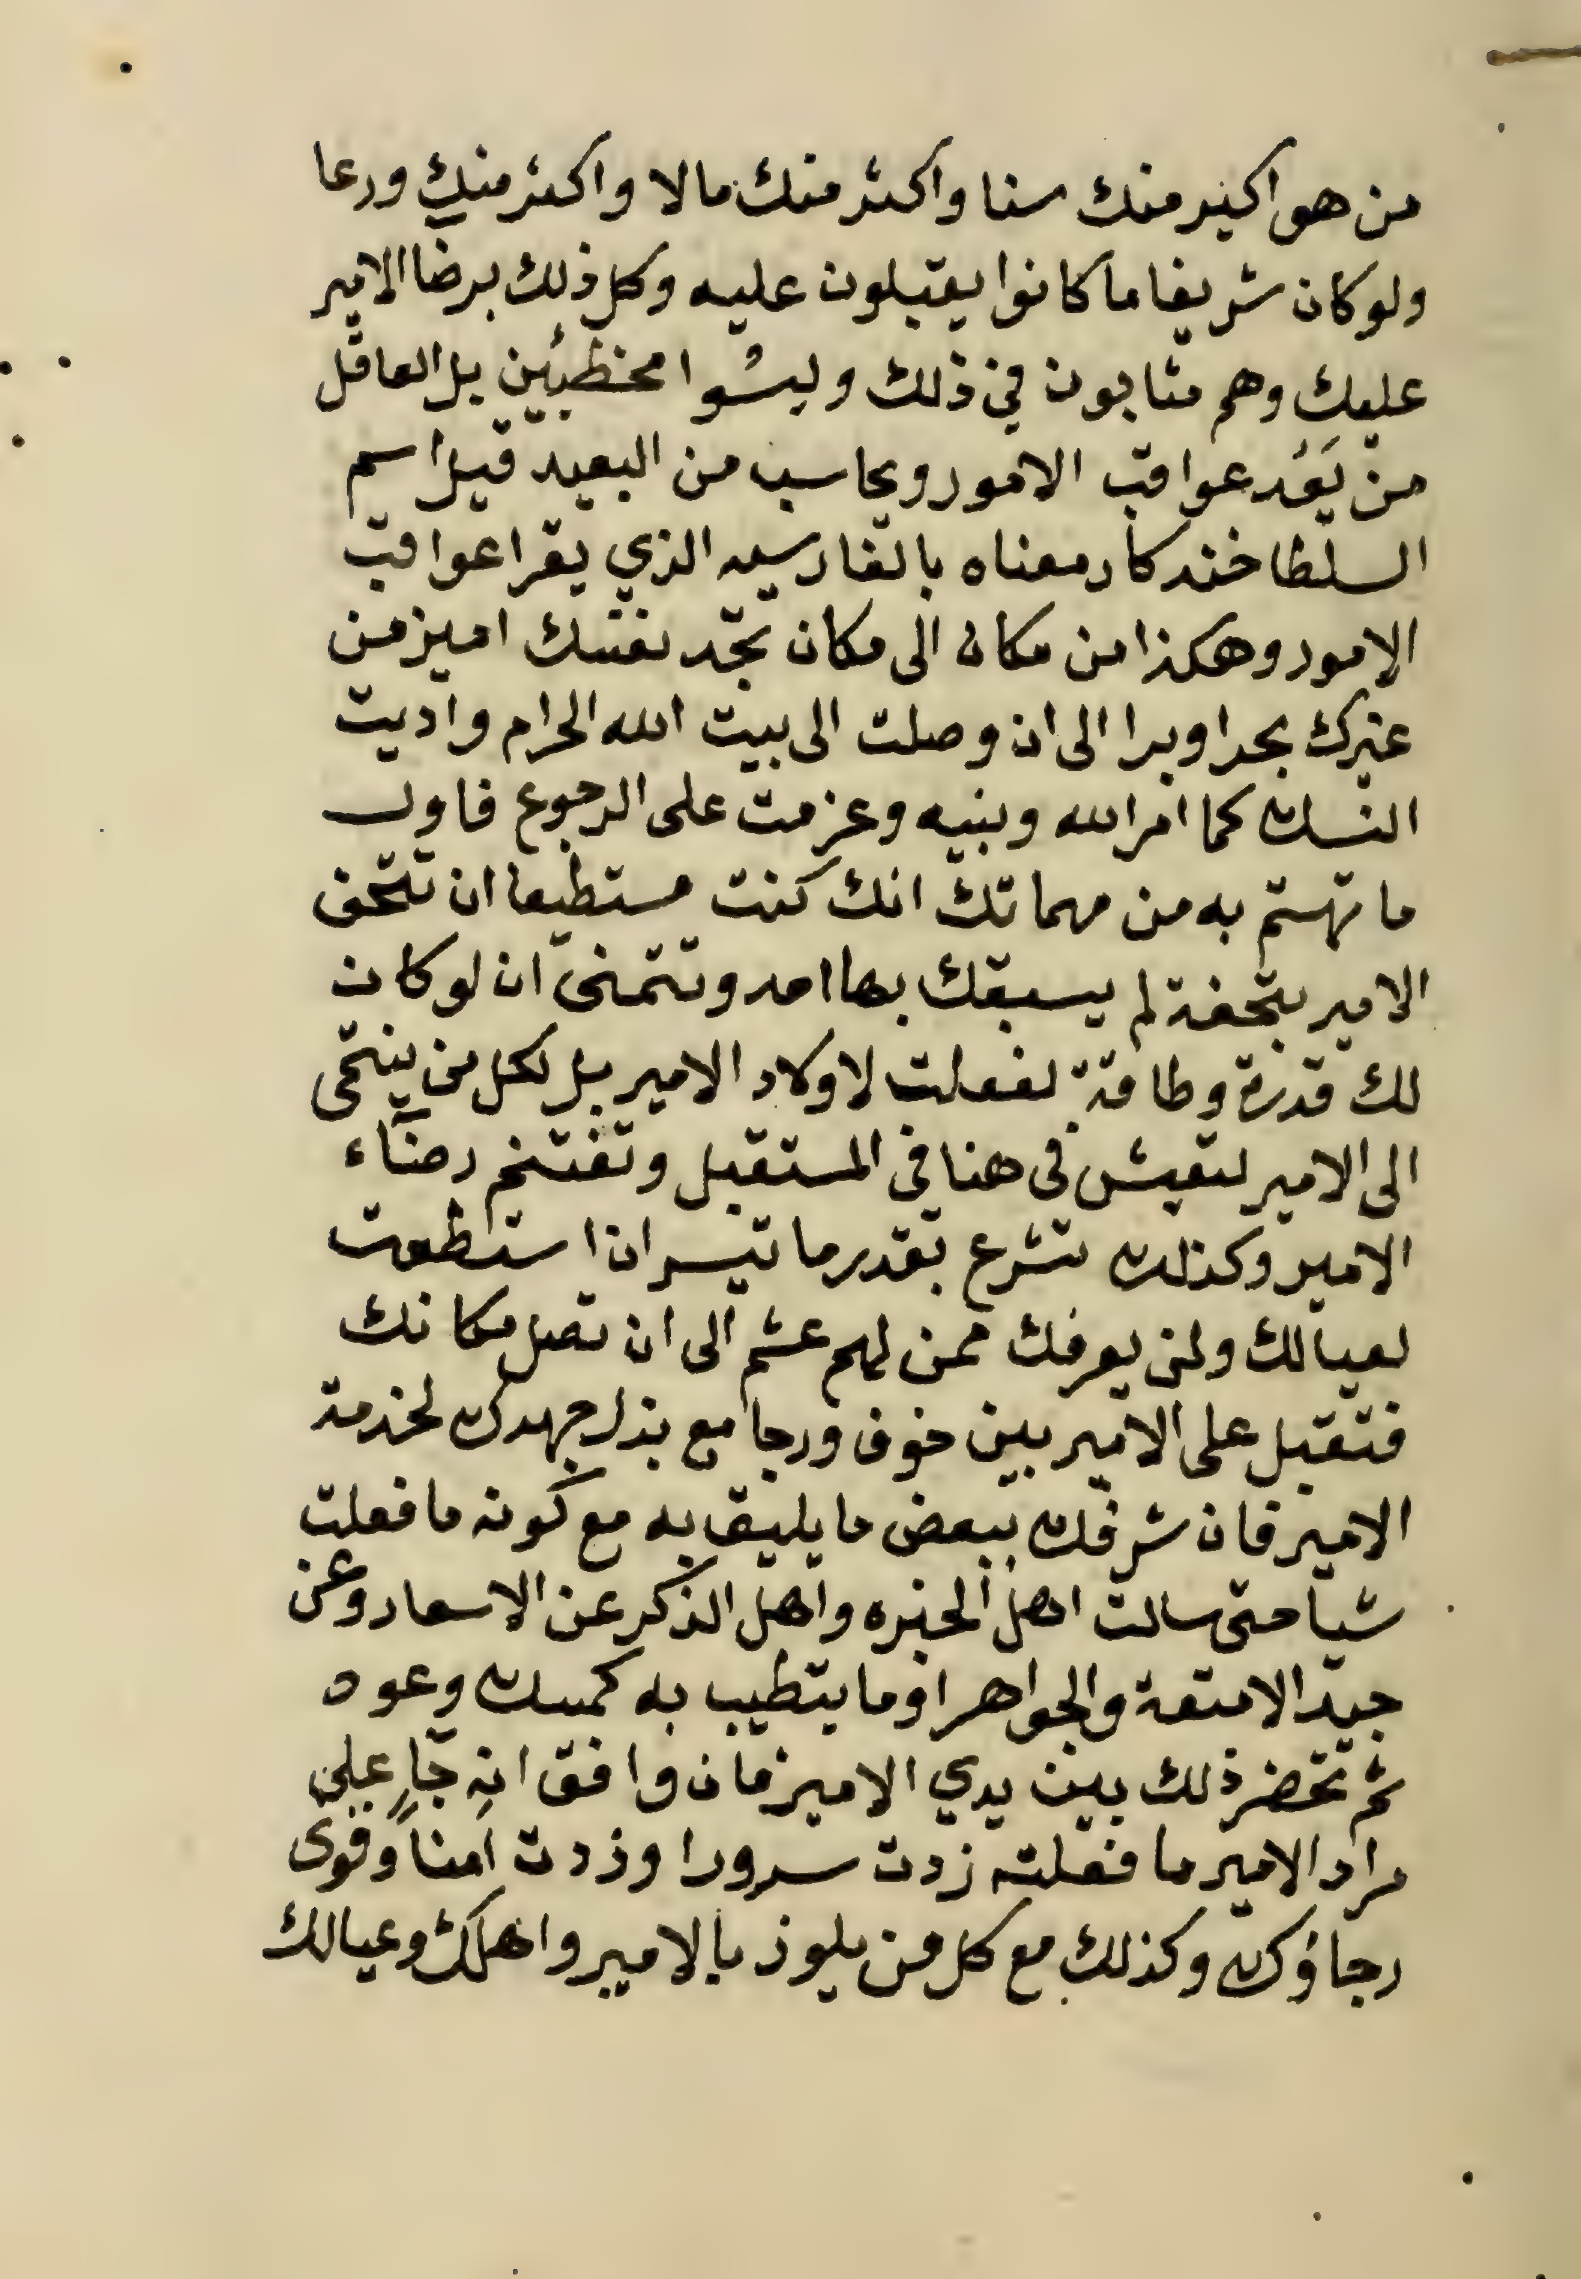 من هو اكبر منك سنا واكثر منك مالا واكثر منك ورعا
ولو كان شريفا ما كانوا يقبلون عليه وكل ذلك برضا الامير
عليك وهم مثابون في ذلك وليسُوا مخطئين بل العاقل
من يَعُد عواقب الامور ويحاسب من البعيد قيل اسم
السلطا خندكار معناه بالفارسيه الذي يقرا عواقب
الامور وهكذا من مكان الى مكان تجد نفسك اميز من
غيرك بحرا وبرا الى ان وصلت الى بيت الله الحرام واديت
النسك كما امر الله ونبيه وعزمت على الرجوع فاول
ما تهتم به من مهماتك انك كنت مستطيعا ان تتحف
الامير بتحفة لم يسبقك بها احد وتتمنى ان لو كان
لك قدرة وطاقة لفعلت لاولاد الامير بل لكل من ينتمى
الى الامير لتعيش فى هنا فى المستقبل وتغتنم رضآء
الامير وكذلك تشرع بقدر ما تيسر ان استطعت
لعيالك ولمن يعرفك ممن لهم عشم الى ان تصل مكانك
فتقبل على الامير بين خوف ورجا مع بذل جهدك لخدمة
الامير فان شرفك ببعض ما يليق به مع كونه ما فعلت
شيا حتى سالت اهل الخبره واهل الذكر عن الاسعار وعن
جيد الامتعة والجواهر او ما يتطيب به كمسك وعود
ثم تحضر ذلك بين يدي الامير فان وافق انه جارٍ على
مراد الامير ما فعلته زدت سرورا وزدت امناً وقوى
رجاؤك وكذلك مع كل من يلوذ بالامير واهلك وعيالك